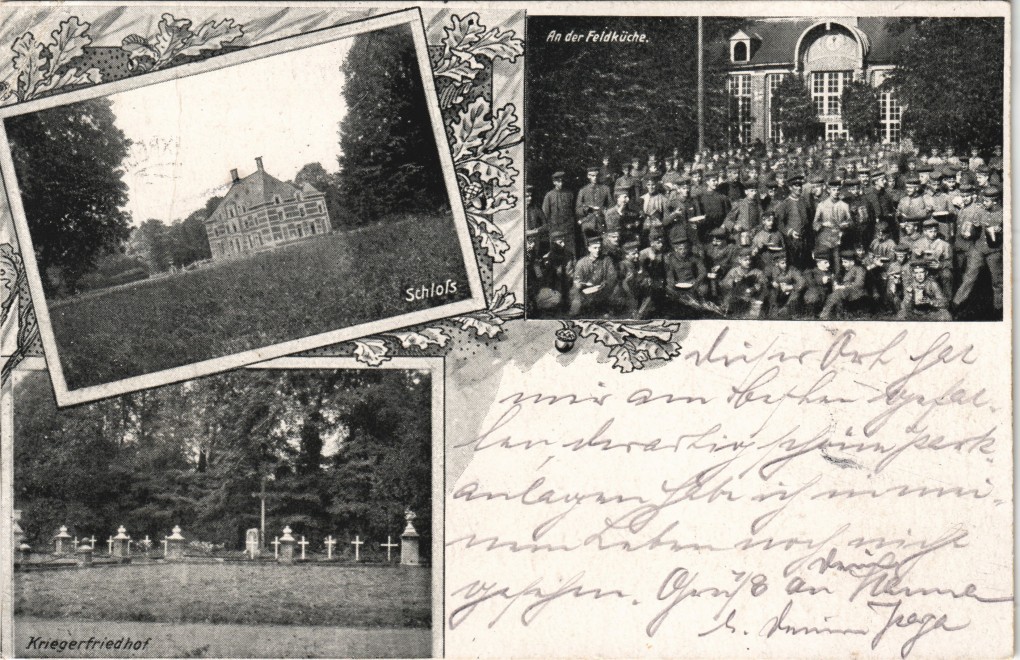 An der Feldküche.
Schloß
Kriegerfriedhof
Dieser Ort hat
mir am besten gefal-
len, derartig schöne Park-
anlagen habe ich in mei-
nem Leben noch nicht
gesehen. Gruß an